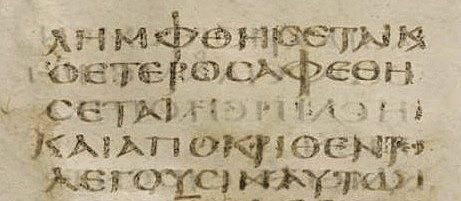 ΛΗΜΦΘΗϹΕΤΑΙΚ
ΟΕΤΕΡΟϹΑΦΕΘΗ
ϹΕΤΑΙ
ΚΑΙΑΠΟΚΡΙΘΕΝΤ
ΛΕΓΟΥϹΙΝΑΥΤΩ